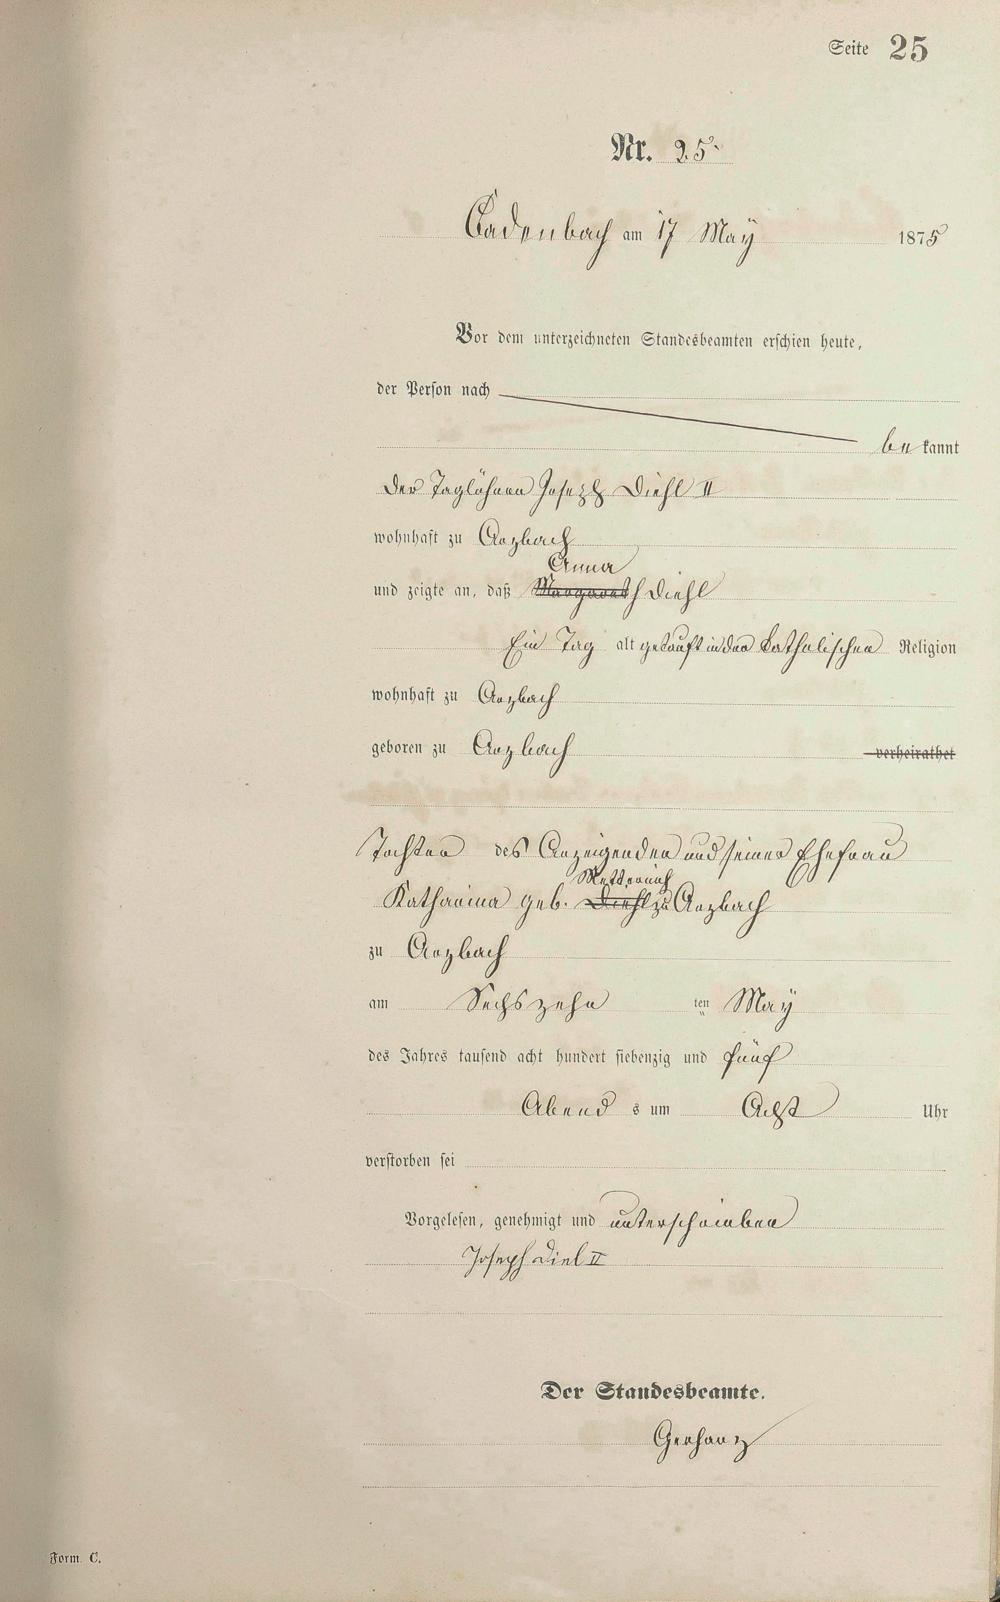 Seite 25
Nr. 25.
Cadenbach am 17 May 1875
Vor dem unterzeichneten Standesbeamten erschien heute,
der Person nach
bekannt
der Taglöhner Joseph Diehl II
wohnhaft zu Arzbach
Anna
und zeigte an, daß Margareth Diehl
Ein Tag alt getauft in der katholischen Religion
wohnhaft zu Arzbach
geboren zu Arzbach verheirathet
Tochter des Anzeigenden und seiner Ehefrau
Metternich
Katharina geb. Diehl zu Arzbach
zu Arzbach
am Sechszehn ten May
des Jahres tausend acht hundert siebenzig und fünf
Abend s um Acht Uhr
verstorben sei
Vorgelesen, genehmigt und unterschrieben
Joseph Diel II
Der Standesbeamte.
Gerharz
Form. C.